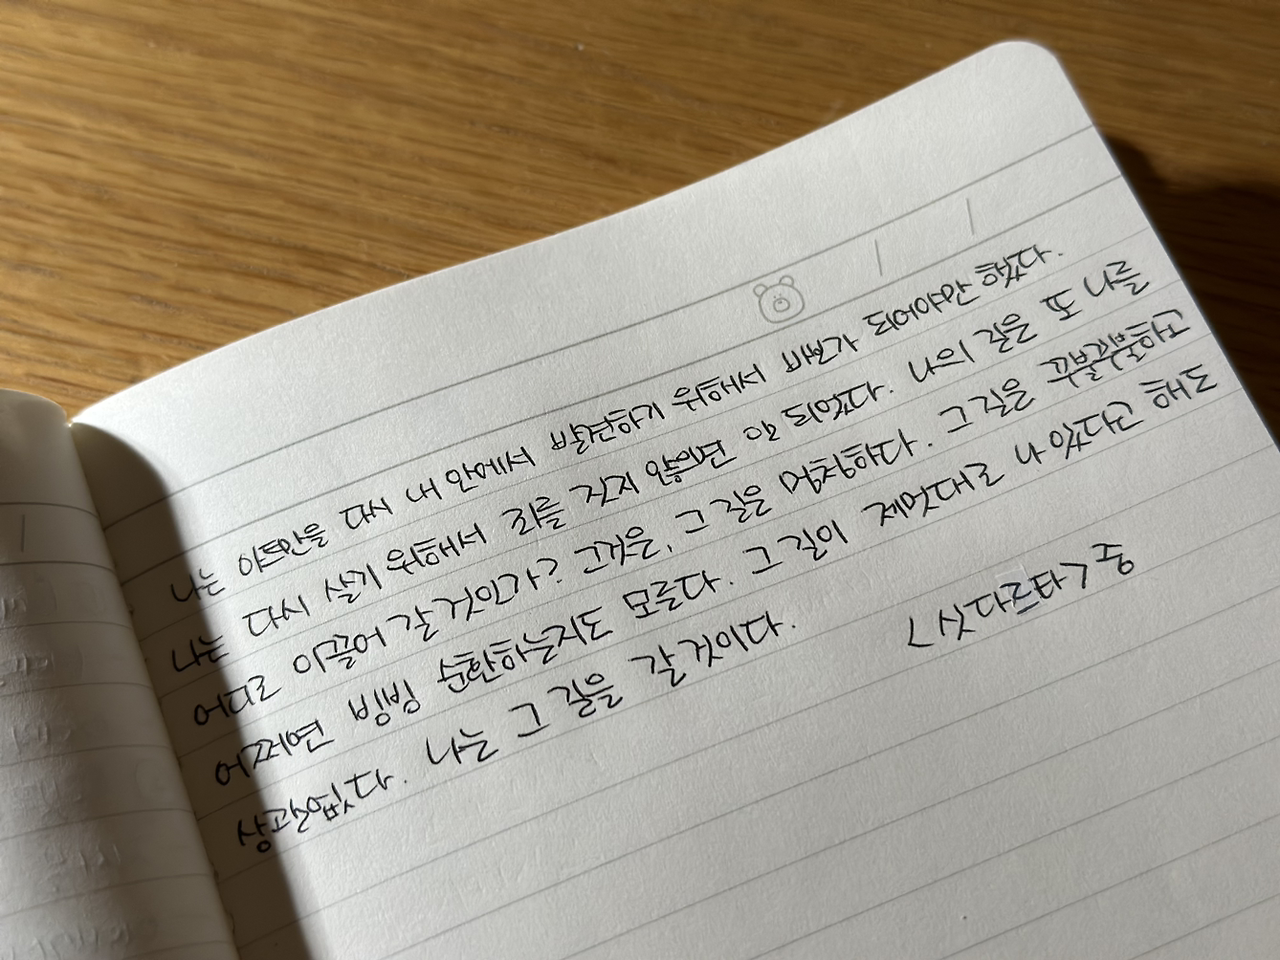 나는 아트만을 다시 내 안에서 발견하기 위해서 바보가 되어야만 했다.
나는 다시 살기 위해서 죄를 짓지 않으면 안 되었다. 나의 길은 또 나를
어디로 이끌어 갈 것인가? 그것은, 그 길은 멍청하다. 그 길은 꾸불꾸불하고
어쩌면 빙빙 순환하는지도 모른다. 그 길이 제멋대로 나 있다고 해도
상관없다. 나는 그 길을 갈 것이다.
<싯다르타> 중